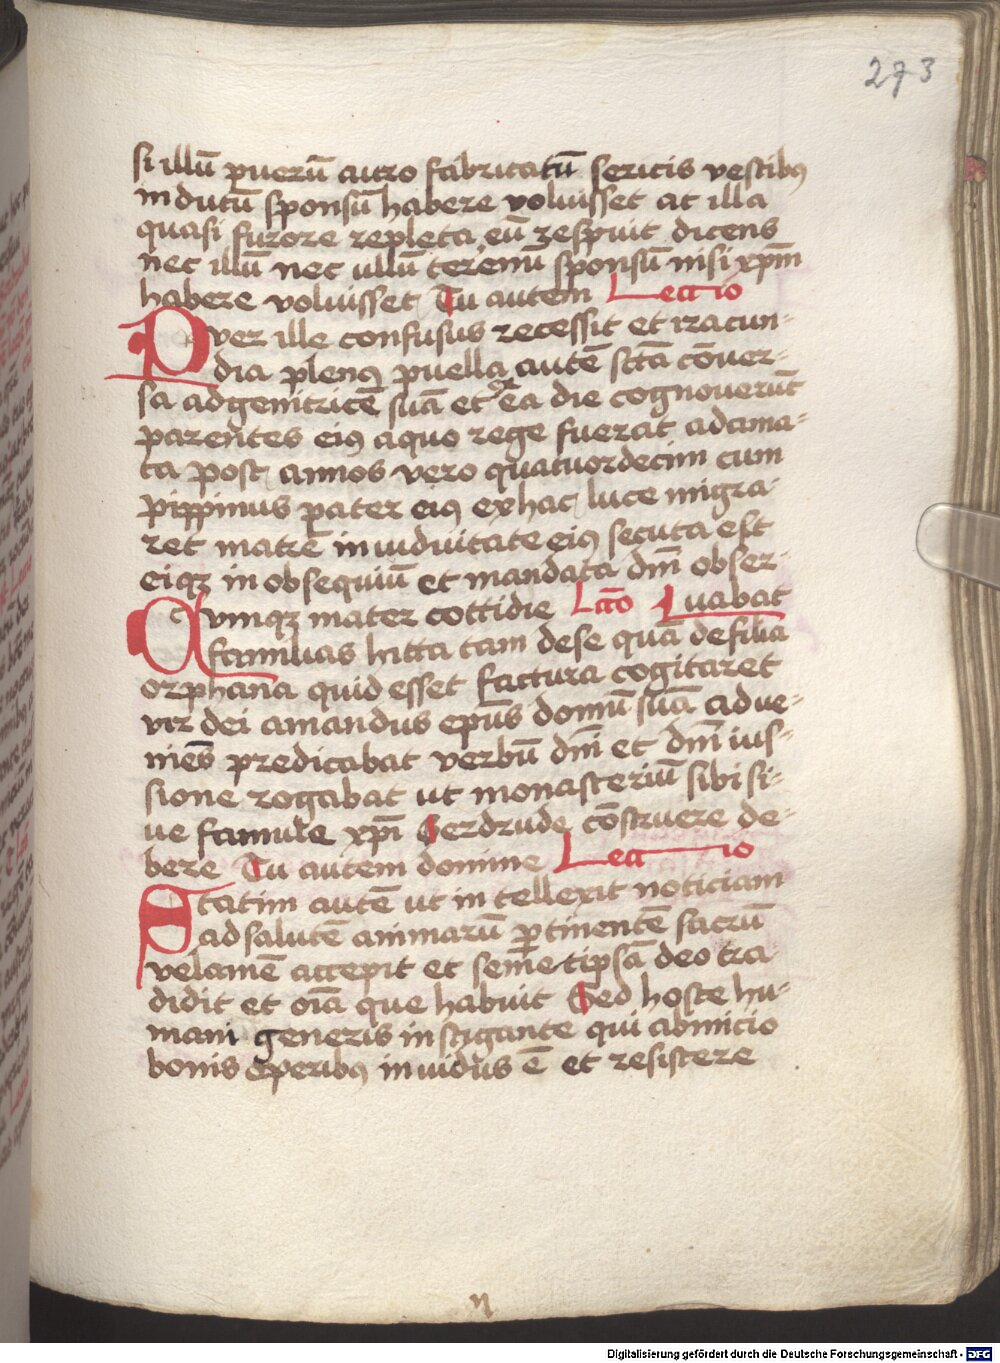 273
si illū puerū auro fabricatū sericis vestibꝰ
indutū sponsū habere voluisset at illa
quasi furore repleta eū respuit dicens
nec illū nec ullū terenū sponsū nisi xpm̄
habere voluisset Tu autem Lectio
Puer ille confusus recessit et iracun-
dia plenꝰ puella autē sctā cōuer-
sa ad genitricē suā et ex ea die cognouerūt
parentes eiꝰ a quo rege fuerat adama-
ta post annos vero quatuordecim cum
pippinus pater eiꝰ ex hac luce migra-
ret matrē in uiduitate eiꝰ secuta est
eiqꝫ in obsequiū et mandata dm̄ obser-
Cumqꝫ mater cottidie Lcō Luabat
famuas hitta tam de se quā de filia
orphana quid esset factura cogitaret
vir dei amandus ep̄us domū suā adue-
niēs predicabat verbū dn̄i et dn̄i ius-
sione rogabat ut monasteriū sibi si-
ue famule xp̄i Gerdrude cōstruere de-
bere Tu autem domine Lectio
Statim autē ut intellexit noticiam
ad salutē animarū ꝑtinentē sacrū
velamē accepit et semetipsā deo tra
didit et oīa que habuit Sed hoste hu-
mani generis instigante qui ab inicio
bonis operibꝰ inuidus ē et resistere
Digitalisierung gefördert durch die Deutsche Forschungsgemeinschaft - DFG